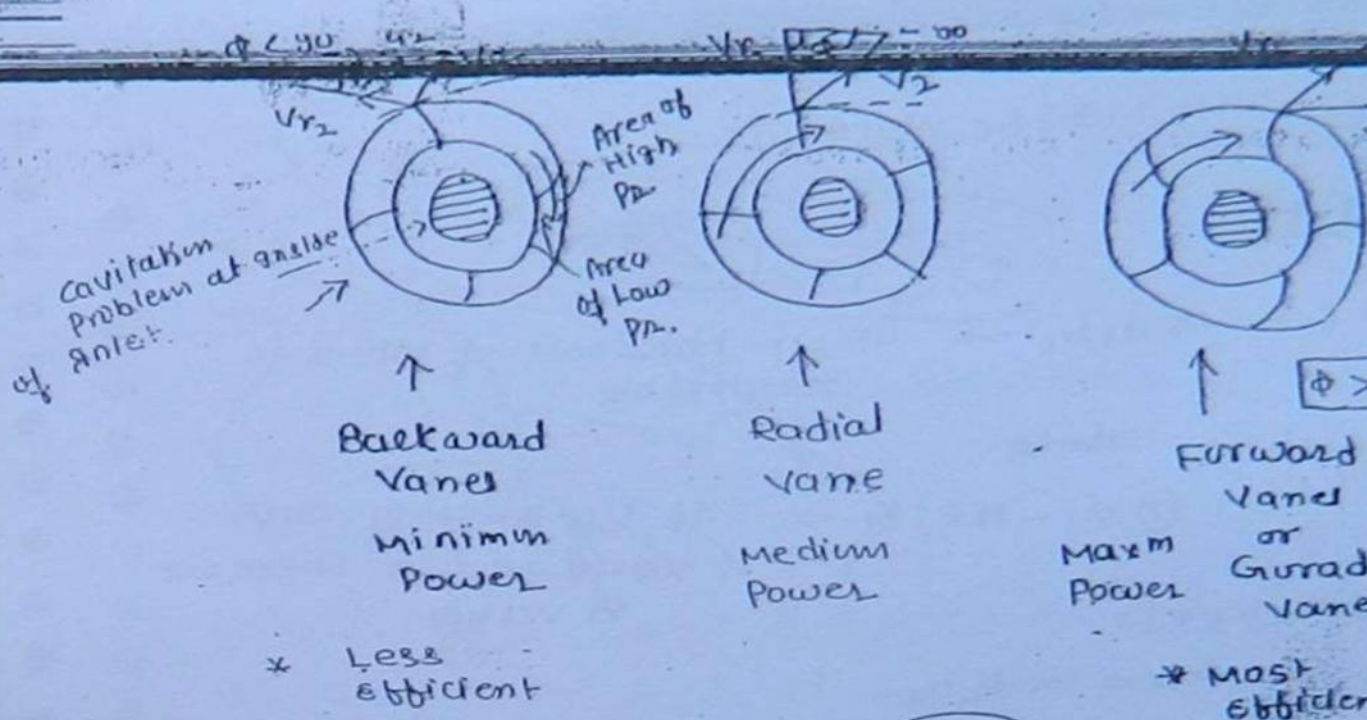 Vr2
V2
Area of
High
Pr.
Area
of Low
Pr.
Cavitation
Problem at inside
of inlet.
Backward
Vanes
Minimum
Power
* Less
efficient
Radial
vane
Medium
Power
Φ >
Forward
Vanes
or
Maxm
Power
vane
* Most